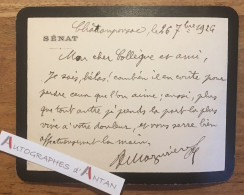 Châteauponsac le 26 7bre 1924
SÉNAT
Mon cher Collègue et ami,
Je sais, hélas! combien il en coûte pour
perdre ceux que l'on aime; aussi, plus
que tout autre je prends la part la plus
vive à votre douleur, et vous serre bien
affectueusement la main.
AUTOGRAPHES D'ANTAN